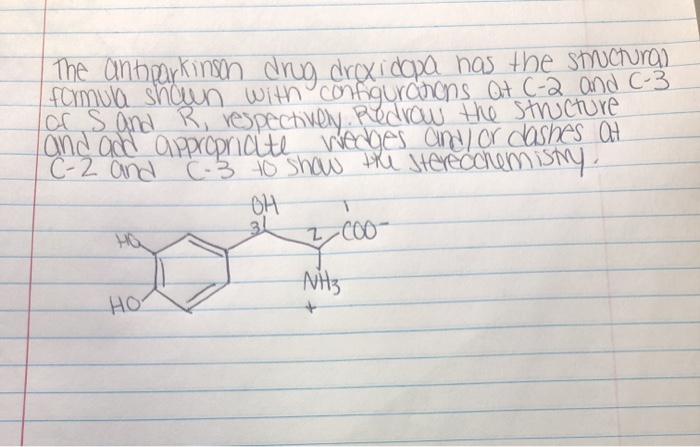 The antiparkinson drug droxidopa has the structural
formula shown with configurations at C-2 and C-3
of S and R, respectively. Redraw the structure
and add appropriate wedges and/or dashes at
C-2 and C-3 to show the stereochemistry.
OH
HO 3 2 COO-
NH3
HO +